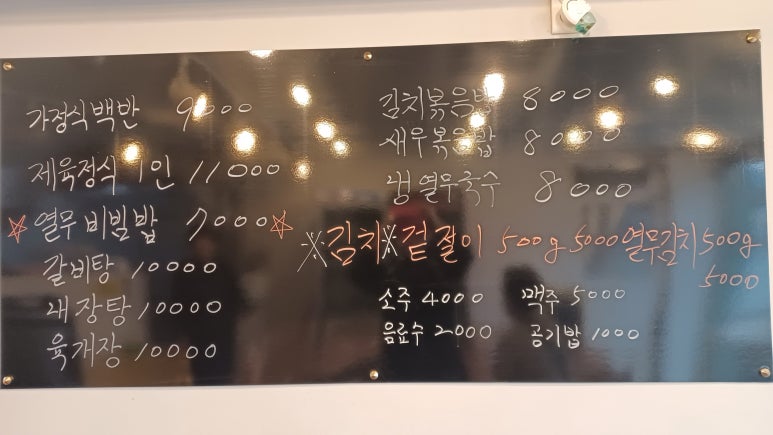 가정식백반 9000
제육정식 1인 11000
☆열무비빔밥 7000☆
갈비탕 10000
내장탕 10000
육개장 10000
김치볶음밥 8000
새우볶음밥 8000
냉열무국수 8000
※김치※겉절이 500g 5000 열무김치 500g
5000
소주 4000 맥주 5000
음료수 2000 공기밥 1000